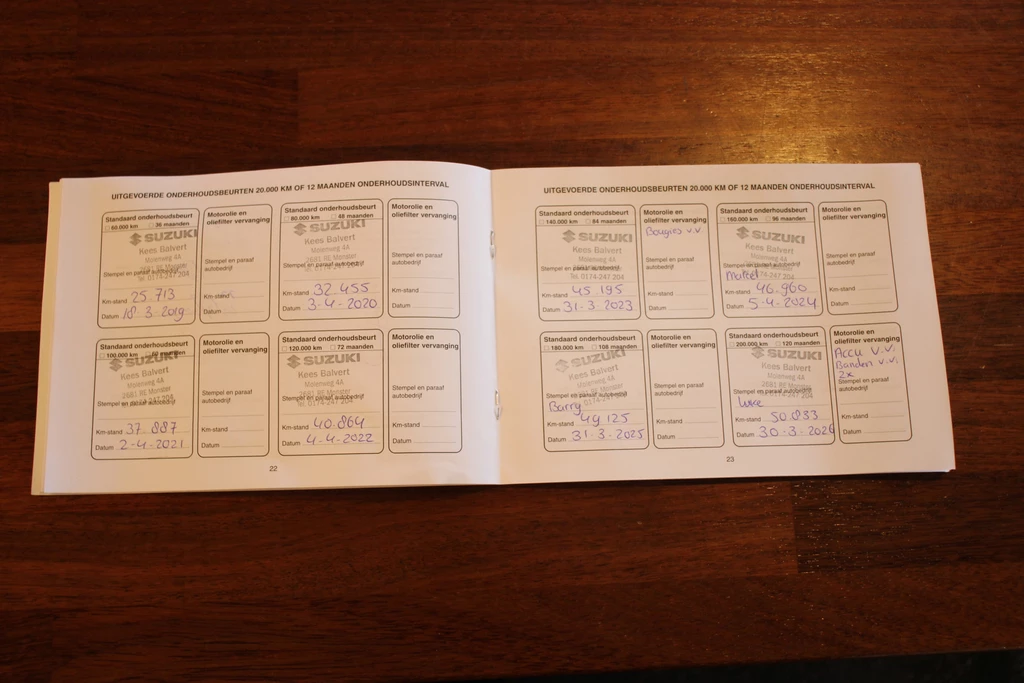 UITGEVOERDE ONDERHOUDSBEURTEN 20.000 KM OF 12 MAANDEN ONDERHOUDSINTERVAL
Standaard onderhoudsbeurt
60.000 km 36 maanden
SUZUKI
Kees Balvert
Molenweg 4A
Stempel en paraaf autobedrijf
Tel. 0174-247 204
Km-stand 25.713
Datum 18-3-2019
Motorolie en
oliefilter vervanging
Stempel en paraaf
autobedrijf
Km-stand
Datum
Standaard onderhoudsbeurt
80.000 km 48 maanden
SUZUKI
Kees Balvert
Molenweg 4A
2681 RE Monster
Stempel en paraaf autobedrijf
Km-stand 32.455
Datum 3-4-2020
Motorolie en
oliefilter vervanging
Stempel en paraaf
autobedrijf
Km-stand
Datum
Standaard onderhoudsbeurt
100.000 km 60 maanden
SUZUKI
Kees Balvert
Molenweg 4A
2681 RE Monster
Stempel en paraaf autobedrijf
Tel. 0174-247 204
Km-stand 37.887
Datum 2-4-2021
Motorolie en
oliefilter vervanging
Stempel en paraaf
autobedrijf
Km-stand
Datum
Standaard onderhoudsbeurt
120.000 km 72 maanden
SUZUKI
Kees Balvert
Molenweg 4A
2681 RE Monster
Stempel en paraaf autobedrijf
Tel. 0174-247 204
Km-stand 40.864
Datum 4-4-2022
Motorolie en
oliefilter vervanging
Stempel en paraaf
autobedrijf
Km-stand
Datum
22
UITGEVOERDE ONDERHOUDSBEURTEN 20.000 KM OF 12 MAANDEN ONDERHOUDSINTERVAL
Standaard onderhoudsbeurt
140.000 km 84 maanden
SUZUKI
Kees Balvert
Molenweg 4A
Stempel en paraaf autobedrijf
Tel. 0174-247 204
Km-stand 45.195
Datum 31-3-2023
Motorolie en
oliefilter vervanging
Bougies v.v.
Stempel en paraaf
autobedrijf
Km-stand
Datum
Standaard onderhoudsbeurt
160.000 km 96 maanden
SUZUKI
Kees Balvert
Molenweg 4A
Stempel en paraaf autobedrijf
Km-stand 46.960
Datum 5-4-2024
Motorolie en
oliefilter vervanging
Stempel en paraaf
autobedrijf
Km-stand
Datum
Standaard onderhoudsbeurt
180.000 km 108 maanden
SUZUKI
Kees Balvert
Molenweg 4A
2681 RE Monster
Stempel en paraaf autobedrijf
Barry
Km-stand 49.125
Datum 31-3-2025
Motorolie en
oliefilter vervanging
Stempel en paraaf
autobedrijf
Km-stand
Datum
Standaard onderhoudsbeurt
200.000 km 120 maanden
SUZUKI
Kees Balvert
Molenweg 4A
2681 RE Monster
Stempel en paraaf autobedrijf
Km-stand 50.833
Datum 30-3-2026
Motorolie en
oliefilter vervanging
Accu v.v.
Banden v.v.
2x
Stempel en paraaf
autobedrijf
Km-stand
Datum
23